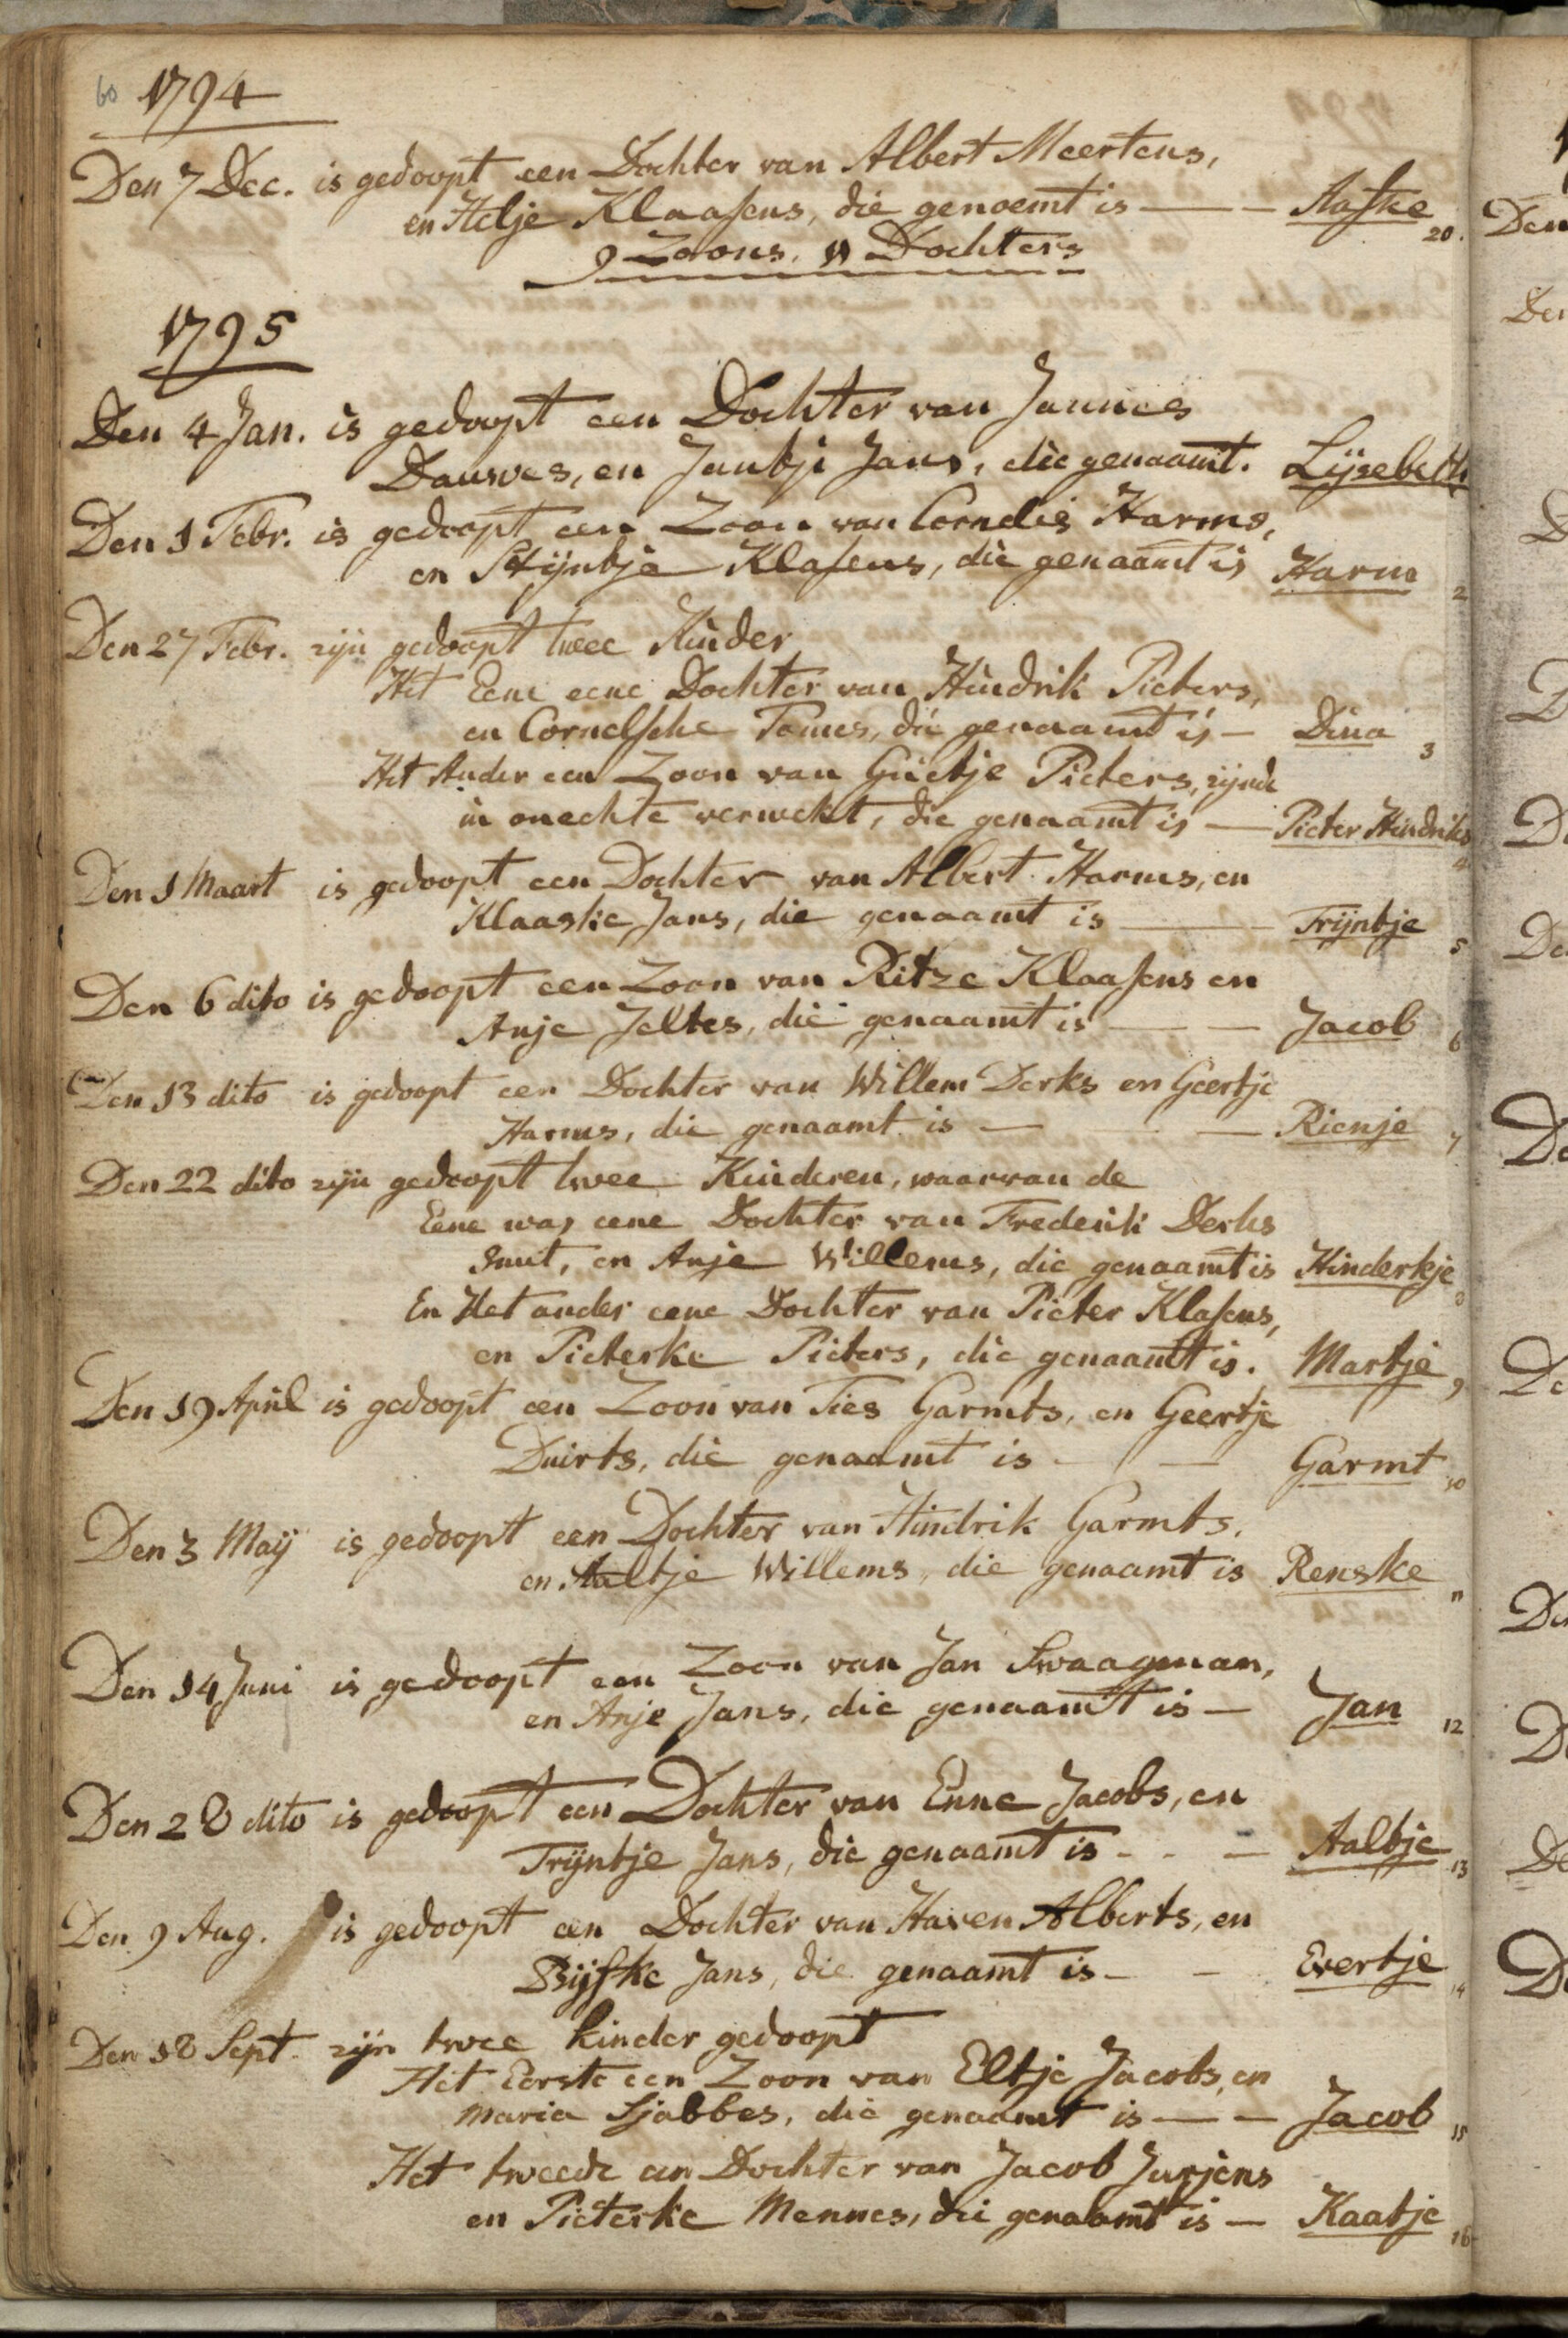 60 1794
Den 7 Dec. is gedoopt een Dochter van Albert Meertens,
en Helje Klaasens, die genoemt is — — Aafke 20.
9 Zoons, 11 Dochters
1795
Den 4 Jan. is gedoopt een Dochter van Jannes
Douwes, en Jantje Jans, die genaamt. Lijsebeth
Den 1 Febr. is gedoopt een Zoon van Cornelis Harms,
en Stijntje Klasens, die genaamt is Harm 2
Den 27 Febr. zijn gedoopt twee Kinder
Het Eene eene Dochter van Hindrik Pieters,
en Cornelsche Tomes, die genaamt is — Dina 3
Het Ander een Zoon van Grietje Pieters, zijnde
in onechte verwekt, die genaamt is — Pieter Hindriks 4
Den 1 Maart is gedoopt een Dochter van Albert Harms, en
Klaaske Jans, die genaamt is — Trijntje 5
Den 6 dito is gedoopt een Zoon van Ritze Klaasens en
Anje Jeltes, die genaamt is — — Jacob 6
Den 13 dito is gedoopt een Dochter van Willem Derks en Geertje
Harms, die genaamt is — — Rienje 7
Den 22 dito zijn gedoopt twee Kinderen, waarvan de
Eene was eene Dochter van Frederik Derks
Smit, en Anje Willems, die genaamt is Hinderkje 8
En Het ander eene Dochter van Pieter Klasens,
en Pieterke Pieters, die genaamt is. Martje 9
Den 19 April is gedoopt een Zoon van Ties Garmts, en Geertje
Duirts, die genaamt is - — Garmt 10
Den 3 Maij is gedoopt een Dochter van Hindrik Garmts,
en Aaltje Willems, die genaamt is Renske 11
Den 14 Juni is gedoopt een Zoon van Jan Swaagman,
en Anje Jans, die genaamt is — Jan 12
Den 28 dito is gedoopt een Dochter van Enne Jacobs, en
Trijntje Jans, die genaamt is - - — Aaltje 13
Den 9 Aug. is gedoopt een Dochter van Haven Alberts, en
Sijfke Jans, die genaamt is - - Evertje 14
Den 18 Sept. zijn twee kinder gedoopt
Het Eerste een Zoon van Eltje Jacobs, en
Maria Sjabbes, die genaamt is — — Jacob 15
Het tweede een Dochter van Jacob Jurjens
en Pieterke Mennes, die genaamt is — Kaatje 16